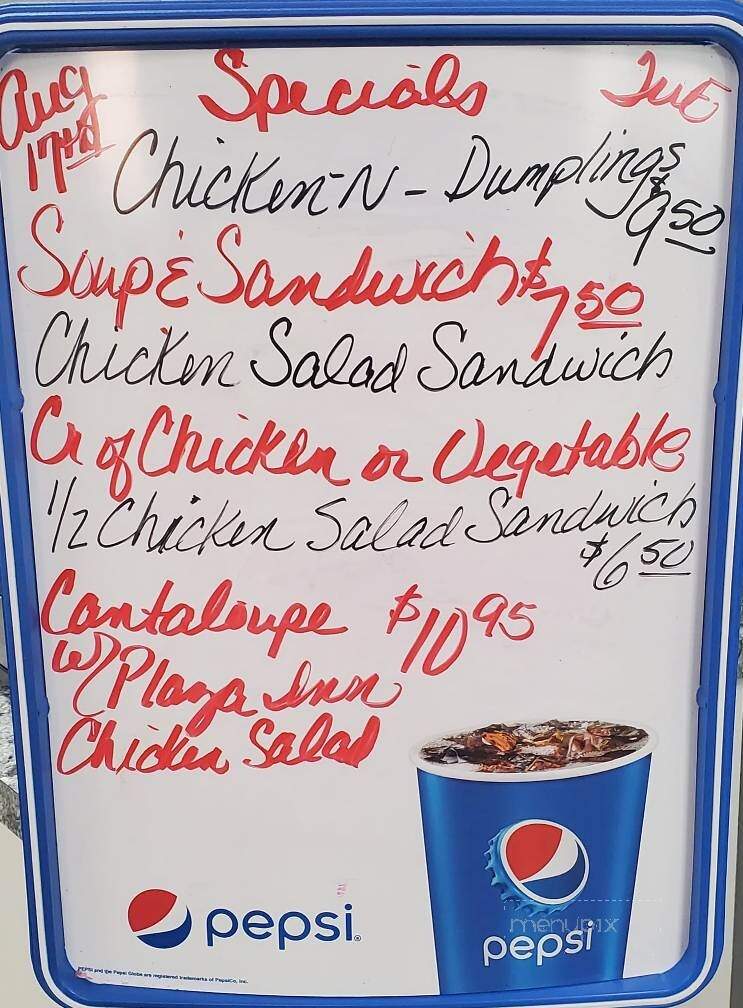 Aug Specials Tue
17th
Chicken-N-Dumplings
$9.50
Soup & Sandwich $7.50
Chicken Salad Sandwich
Cr of Chicken or Vegetable
1/2 Chicken Salad Sandwich
$6.50
Cantaloupe $10.95
w/ Plaza Inn
Chicken Salad
pepsi
menupix
pepsi
PEPSI and the Pepsi Globe are registered trademarks of PepsiCo, Inc.